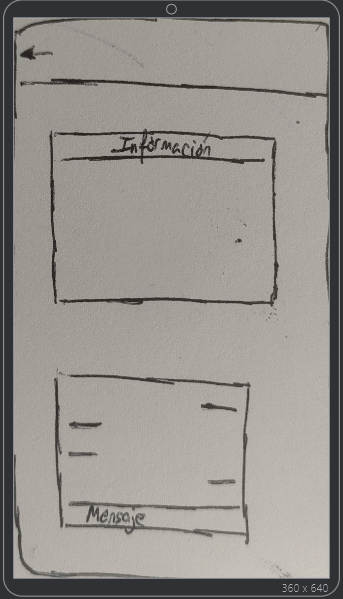 Información
Mensaje
360 x 640